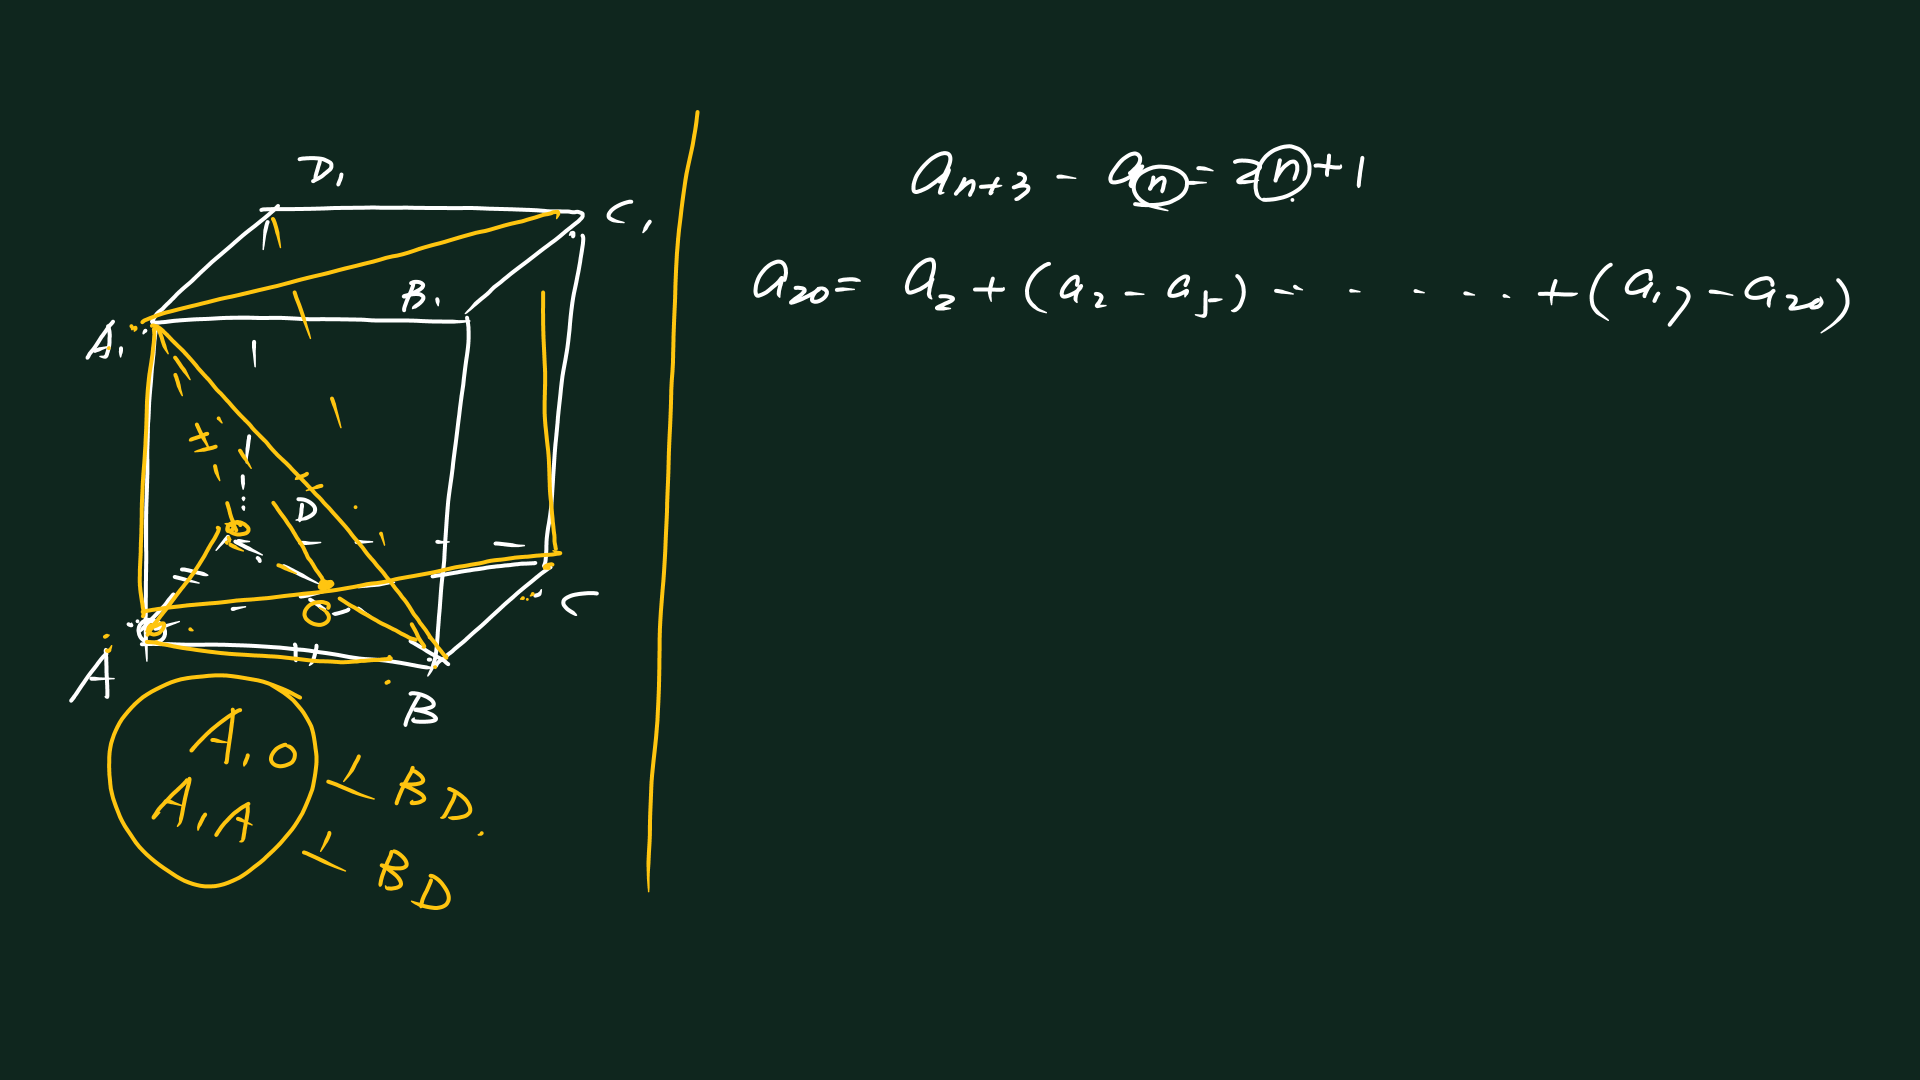 D₁
C₁
B₁
A₁
D
O
C
A
B
A₁O ⊥ BD.
A₁A ⊥ BD
aₙ₊₃ - aₙ = 2n + 1
a₂₀ = a₂ + (a₂ - a₅) - · · · · · + (a₁₇ - a₂₀)